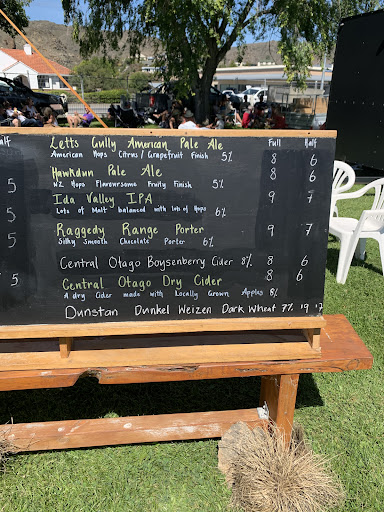 Half
Letts Gully American Pale Ale Full Half
American Hops Citrus / Grapefruit Finish 5% 8 6
Hawkdun Pale Ale 8 6
5 NZ Hops Flavoursome Fruity Finish 5%
Ida Valley IPA 9 7
5 Lots of Malt balanced with lots of Hops 6%
Raggedy Range Porter 9 7
5 Silky Smooth Chocolate Porter 6%
Central Otago Boysenberry Cider 8% 8 6
5 Central Otago Dry Cider 8 6
A dry Cider made with Locally Grown Apples 8%
Dunstan Dunkel Weizen Dark Wheat 7%